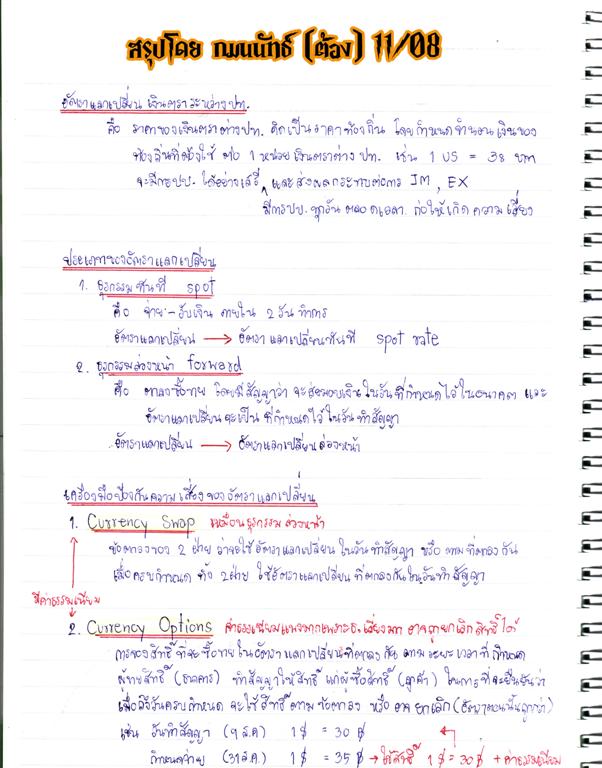 สรุปโดย ณนนัทธ์ (ต้อง) 11/08
อัตราแลกเปลี่ยน เงินตราระหว่างปท.
คือ ราคาของเงินตราต่างปท. คิดเป็นราคาท้องถิ่น โดยกำหนดจำนวนเงินของ
ท้องถิ่นที่ต้องใช้ ต่อ 1 หน่วยเงินตราต่างปท. เช่น 1 US = 38 บาท
จะมีการปป. ได้อย่างเสรี และส่งผลกระทบต่อการ IM , EX
มีการปป. ทุกวัน ตลอดเวลา ก่อให้เกิดความเสี่ยง
ประเภทของอัตราแลกเปลี่ยน
1. ธุรกรรมทันที spot
คือ จ่าย - รับเงิน ภายใน 2 วันทำการ
อัตราแลกเปลี่ยน → อัตราแลกเปลี่ยนทันที spot rate
2. ธุรกรรมล่วงหน้า forward
คือ ตกลงซื้อขาย โดยมีสัญญาว่า จะส่งมอบเงินในวันที่กำหนดไว้ในอนาคต และ
อัตราแลกเปลี่ยนจะเป็น ที่กำหนดไว้ในวันทำสัญญา
อัตราแลกเปลี่ยน → อัตราแลกเปลี่ยนล่วงหน้า
เครื่องมือป้องกันความเสี่ยงของอัตราแลกเปลี่ยน
1. Currency Swap เหมือนธุรกรรมล่วงหน้า
ข้อตกลงของ 2 ฝ่าย ว่าจะใช้อัตราแลกเปลี่ยนในวันทำสัญญา หรือ ตามที่ตกลงกัน
เมื่อครบกำหนด ทั้ง 2 ฝ่าย ใช้อัตราแลกเปลี่ยนที่ตกลงกันในวันทำสัญญา
มีค่าธรรมเนียม
2. Currency Options ค่าธรรมเนียมแพงมากเพราะธ.เสี่ยงมาก อาจถูกยกเลิกสิทธิ์ได้
การจองสิทธิ์ที่จะซื้อขายในอัตราแลกเปลี่ยนที่ตกลงกัน ตามระยะเวลาที่กำหนด
ผู้ขายสิทธิ์ (ธนาคาร) ทำสัญญาให้สิทธิ์ แก่ผู้ซื้อสิทธิ์ (ลูกค้า) ในการที่จะยืนยันว่า
เมื่อถึงวันครบกำหนด จะใช้สิทธิ์ตามข้อตกลง หรือ อาจยกเลิก (อัตราตอนนั้นถูกกว่า)
เช่น วันทำสัญญา (1 ส.ค.) 1 $ = 30 ฿
กำหนดจ่าย (31 ส.ค.) 1 $ = 35 ฿ → ใช้สิทธิ์ 1 $ = 30 ฿ + ค่าธรรมเนียม